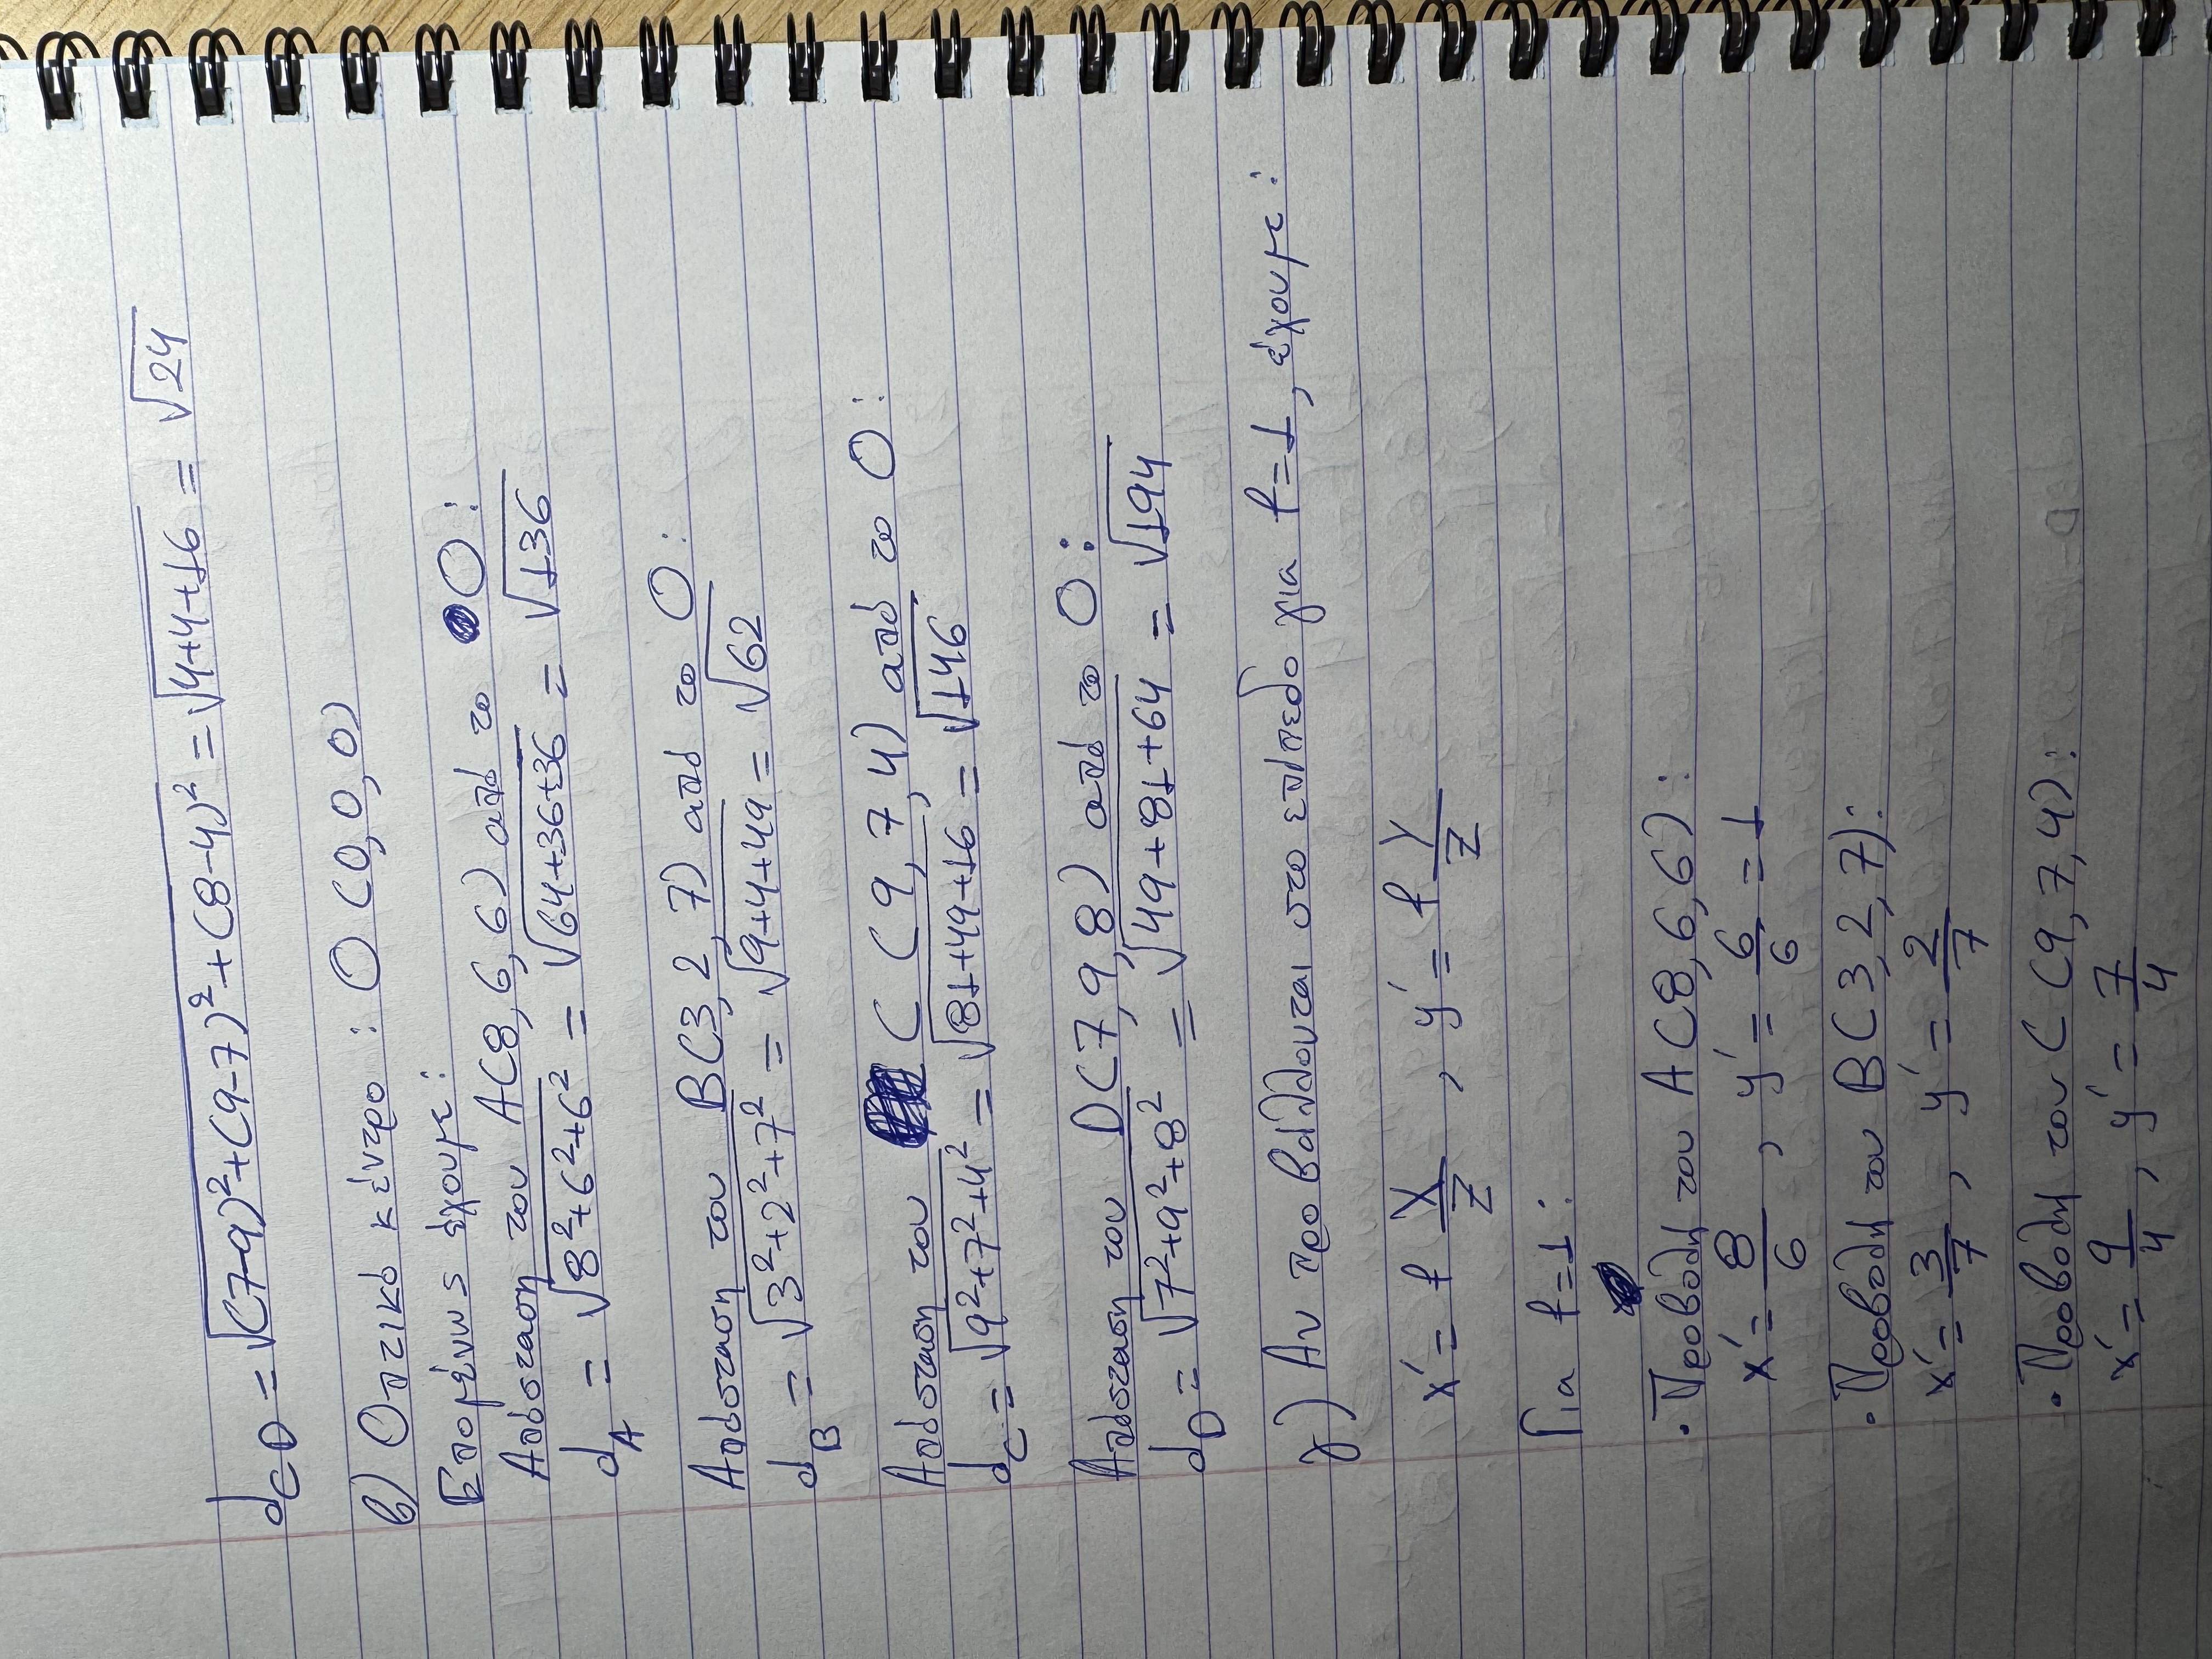 d_CD = √((7-9)²+(9-7)²+(8-4)²) = √(4+4+16) = √24
β) Οπτικό κέντρο : O (0,0,0)
Επομένως έχουμε :
Απόσταση του A(8,6,6) από το O :
d_A = √(8²+6²+6²) = √(64+36+36) = √136
Απόσταση του B(3,2,7) από το O :
d_B = √(3²+2²+7²) = √(9+4+49) = √62
Απόσταση του C (9,7,4) από το O :
d_C = √(9²+7²+4²) = √(81+49+16) = √146
Απόσταση του D(7,9,8) από το O :
d_D = √(7²+9²+8²) = √(49+81+64) = √194
γ) Αν προβάλλονται στο επίπεδο για f=1, έχουμε :
x' = f X/Z , y' = f Y/Z
Για f=1 :
· Προβολή του A(8,6,6) :
x' = 8/6 , y' = 6/6 = 1
· Προβολή του B(3,2,7) :
x' = 3/7 , y' = 2/7
· Προβολή του C (9,7,4) :
x' = 9/4 , y' = 7/4